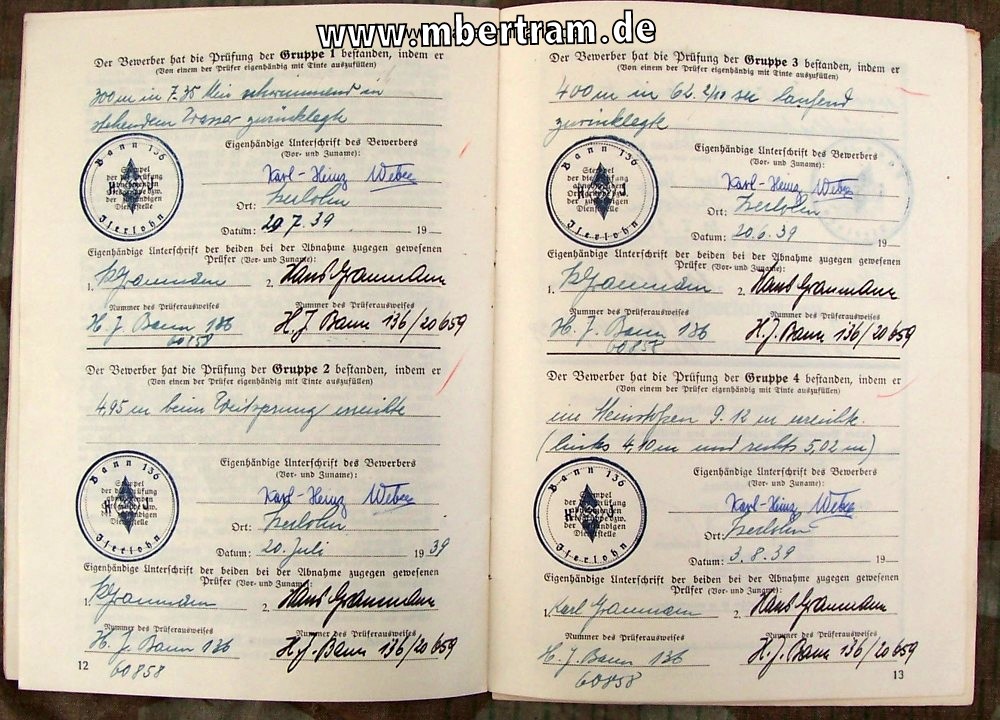 www.mbertram.de
Der Bewerber hat die Prüfung der Gruppe 1 bestanden, indem er
(Von einem der Prüfer eigenhändig mit Tinte auszufüllen)
300 m in 7.35 Min schwimmend in
stehendem Wasser zurücklegte
Bann 136
H J
Stempel
Iserlohn
Eigenhändige Unterschrift des Bewerbers
(Vor- und Zuname):
Karl-Heinz Weber
Ort: Iserlohn
Datum: 20.7.39 19
Eigenhändige Unterschrift der beiden bei der Abnahme zugegen gewesenen
Prüfer (Vor- und Zuname):
1. 2. Hans Graumann
Nummer des Prüferausweises Nummer des Prüferausweises
H. J. Bann 136 H.J. Bann 136/20659
60858
Der Bewerber hat die Prüfung der Gruppe 2 bestanden, indem er
(Von einem der Prüfer eigenhändig mit Tinte auszufüllen)
4.95 m beim Weitsprung erreichte
Bann 136
H J
Iserlohn
Eigenhändige Unterschrift des Bewerbers
(Vor- und Zuname):
Karl-Heinz Weber
Ort: Iserlohn
Datum: 20. Juli 1939
Eigenhändige Unterschrift der beiden bei der Abnahme zugegen gewesenen
Prüfer (Vor- und Zuname):
1. 2. Hans Graumann
Nummer des Prüferausweises Nummer des Prüferausweises
H. J. Bann 136 H.J. Bann 136/20659
60858
12
Der Bewerber hat die Prüfung der Gruppe 3 bestanden, indem er
(Von einem der Prüfer eigenhändig mit Tinte auszufüllen)
400 m in 64. 2/10 sec laufend
zurücklegte
Bann 136
H J
Stempel
der die Prüfung
abnehmenden
Dienststelle
Iserlohn
Eigenhändige Unterschrift des Bewerbers
(Vor- und Zuname):
Karl-Heinz Weber
Ort: Iserlohn
Datum: 20.6.39 19
Eigenhändige Unterschrift der beiden bei der Abnahme zugegen gewesenen
Prüfer (Vor- und Zuname):
1. 2. Hans Graumann
Nummer des Prüferausweises Nummer des Prüferausweises
H. J. Bann 136 H.J. Bann 136/20659
60858
Der Bewerber hat die Prüfung der Gruppe 4 bestanden, indem er
(Von einem der Prüfer eigenhändig mit Tinte auszufüllen)
im Steinstoßen 9.12 m erreichte.
(links 4,10 m und rechts 5,02 m)
Bann 136
Iserlohn
Eigenhändige Unterschrift des Bewerbers
(Vor- und Zuname):
Karl-Heinz Weber
Ort: Iserlohn
Datum: 3.8.39 19
Eigenhändige Unterschrift der beiden bei der Abnahme zugegen gewesenen
Prüfer (Vor- und Zuname):
1. Karl Graumann 2. Hans Graumann
Nummer des Prüferausweises Nummer des Prüferausweises
H. J. Bann 136 H.J. Bann 136/20659
60858
13